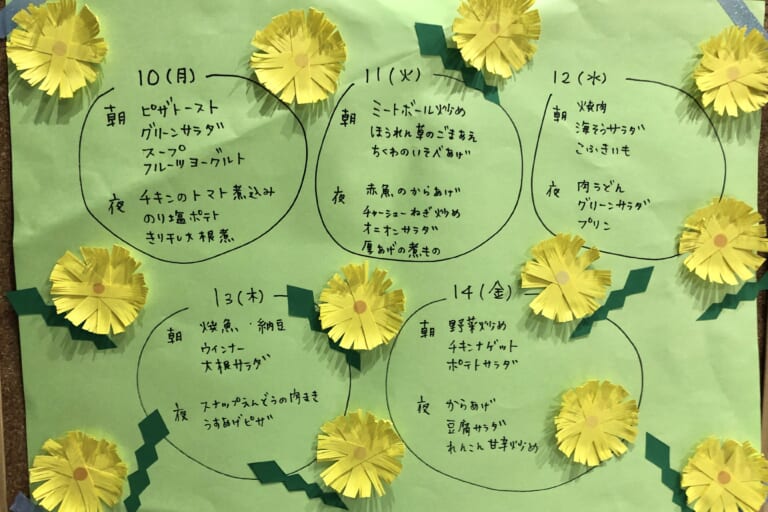 10(月)
朝 ピザトースト
グリーンサラダ
スープ
フルーツヨーグルト
夜 チキンのトマト煮込み
のり塩ポテト
きり干し大根煮
11(火)
朝 ミートボール炒め
ほうれん草のごまあえ
ちくわのいそべあげ
夜 赤魚のからあげ
チャーシューねぎ炒め
オニオンサラダ
厚あげの煮もの
12(水)
朝 焼肉
海そうサラダ
こふきいも
夜 肉うどん
グリーンサラダ
プリン
13(木)
朝 焼魚・納豆
ウインナー
大根サラダ
夜 スナップえんどうの肉まき
うすあげピザ
14(金)
朝 野菜炒め
チキンナゲット
ポテトサラダ
夜 からあげ
豆腐サラダ
れんこん甘辛炒め